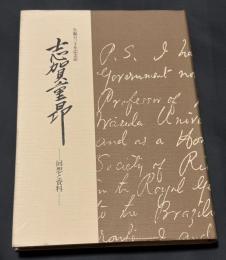 生誕百三十年記念誌
志賀重昂
―回想と資料―
P.S. I ha
Government no
Professor of
Waseda Univer
and as a Ho
Society of
in the Royal G
to the Brazilia